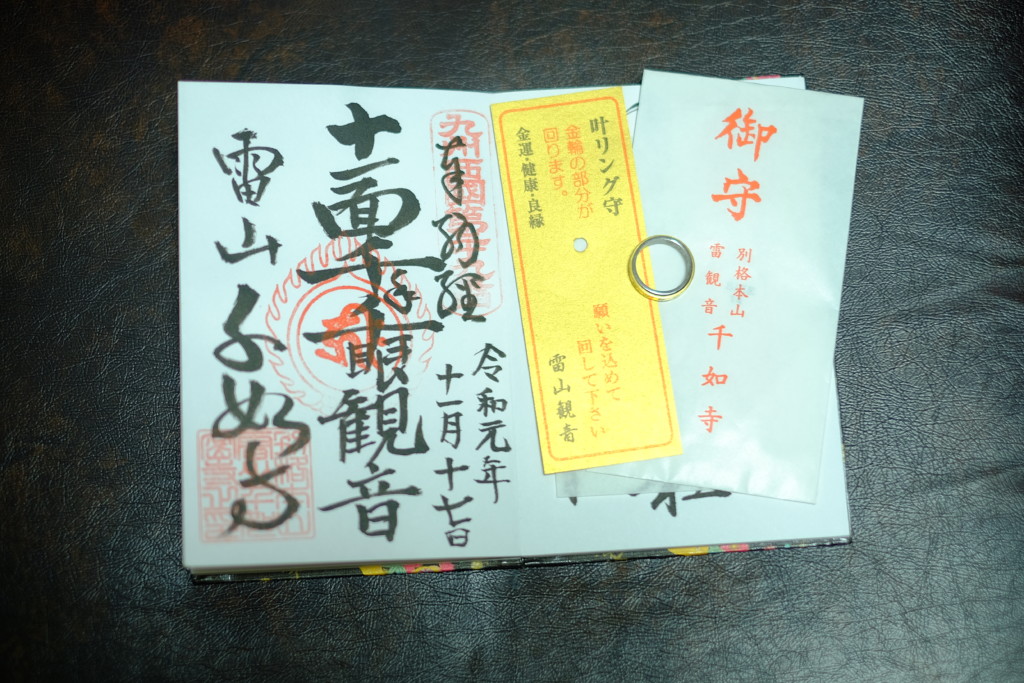 御守
別格本山
雷観音千如寺
叶リング守
金輪の部分が
回ります。
金運・健康・良縁
願いを込めて
回して下さい
雷山観音
奉納経
令和元年
十一月十七日
十一面千手千眼観音
雷山千如寺